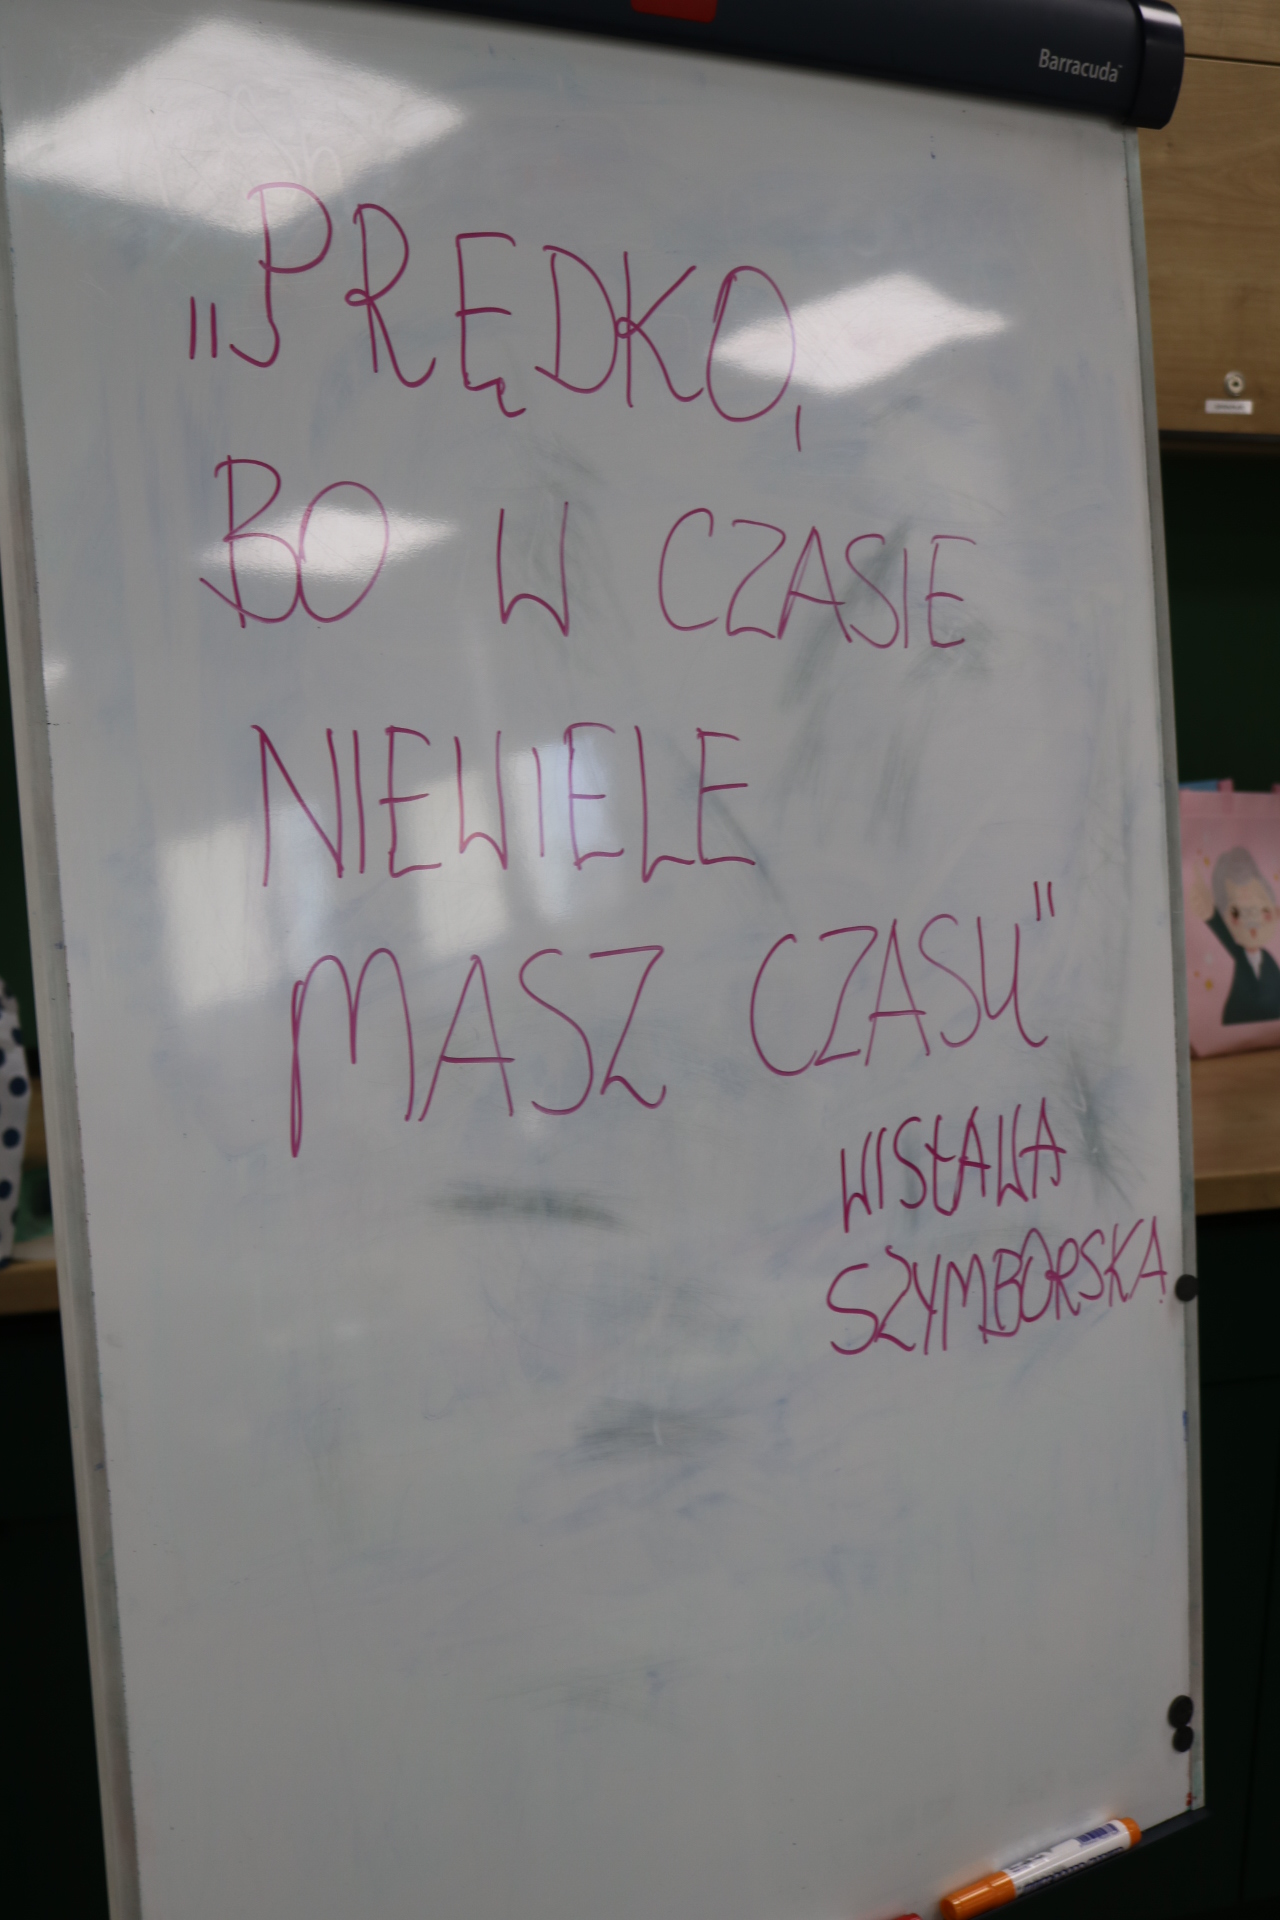 Barracuda
„PRĘDKO,
BO W CZASIE
NIEWIELE
MASZ CZASU"
WISŁAWA
SZYMBORSKA